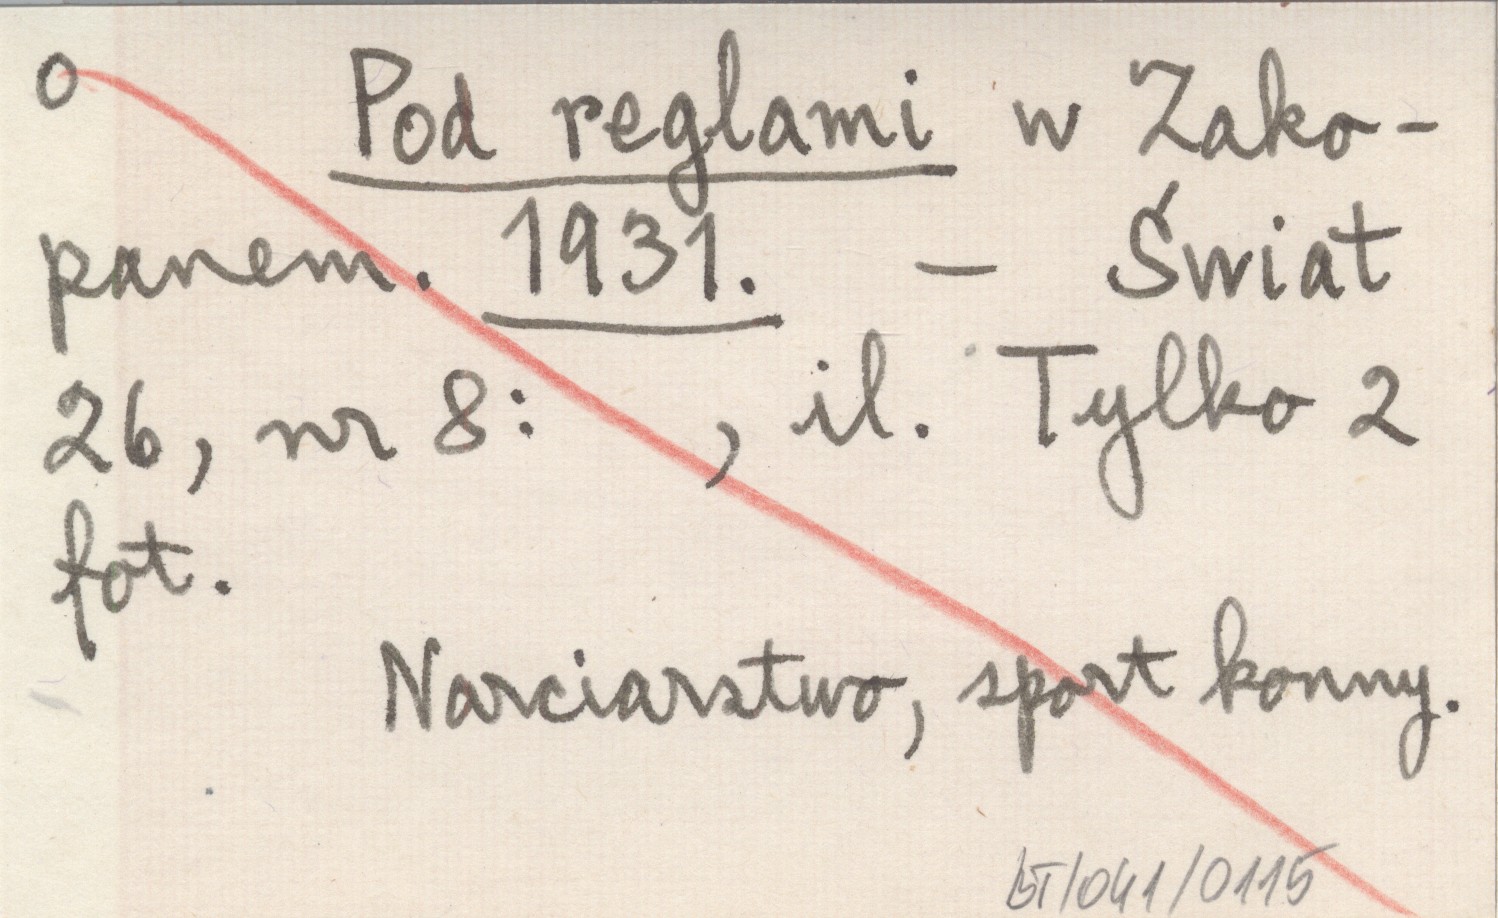 o Pod reglami w Zako-
panem. 1931. — Świat
26, nr 8: , il. Tylko 2
fot.
Narciarstwo, sport konny.
BT/041/0115